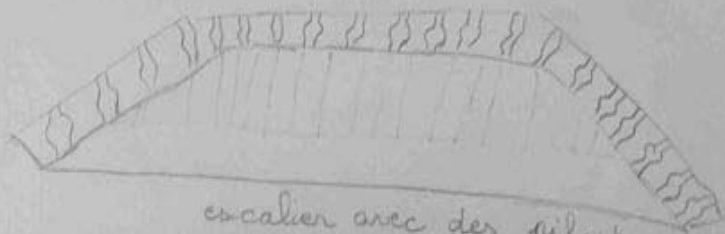 escalier avec des